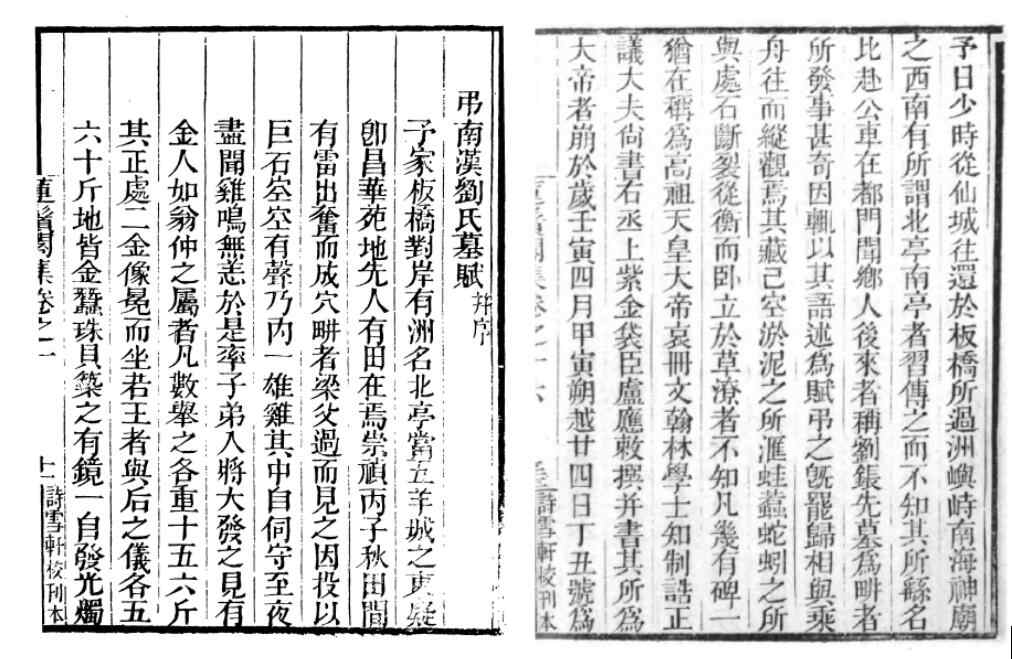 予日少時從仙城往還於板橋所過洲嶼峙南海神廟
之西南有所謂北亭南亭者習傳之而不知其所繇名
比赴公車在都門聞鄉人後來者稱劉鋹先墓爲畊者
所發事甚奇因輒以其語述爲賦弔之旣罷歸相與乘
舟往而縱觀焉其藏已空淤泥之所滙蛙蠚蛇蚓之所
與處石斷裂從衡而臥立於草潦者不知凡幾有碑一
猶在稱爲高祖天皇大帝哀冊文翰林學士知制誥正
議大夫尙書右丞上紫金袋臣盧應敕撰并書其所爲
大帝者崩於歲壬寅四月甲寅朔越廿四日丁丑號爲
集卷之十六 詩雪軒校刊本
弔南漢劉氏墓賦 并序
予家板橋對岸有洲名北亭當五羊城之東疑
卽昌華苑地先人有田在焉崇禎丙子秋田間
有雷出奮而成穴畊者梁父過而見之因投以
巨石空空有聲乃內一雄雞其中自伺守至夜
盡聞雞鳴無恙於是率子弟入將大發之見有
金人如翁仲之屬者凡數舉之各重十五六斤
其正處二金像冕而坐若王者與后之儀各五
六十斤地皆金蠶珠貝築之有鏡一自發光燭
蓮鬚閣集卷之一 十一 詩雪軒校刊本